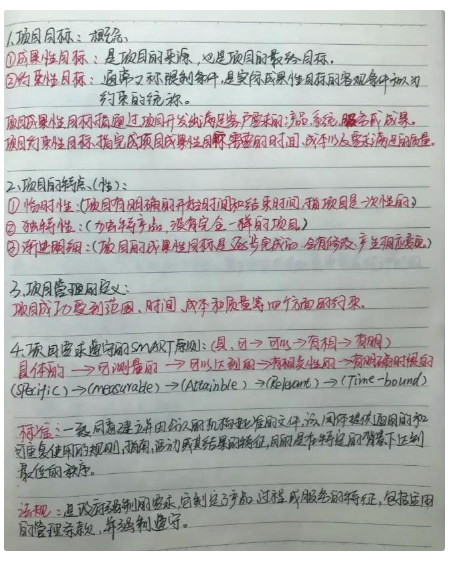 1.项目目标：概念：
①成果性目标：是项目的来源，也是项目的最终目标。
②约束性目标：通常又称限制条件，是实际成果性目标的客观条件和人为
约束的统称。
项目成果性目标指通过项目开发出满足客户要求的产品、系统、服务或成果。
项目约束性目标，指完成项目成果性目标需要的时间、成本以及要求满足的质量。
2.项目的特点(性)：
①临时性：(项目有明确的开始时间和结束时间，指项目是一次性的)
②独特性：(创造特产品，没有完全一样的项目)
③渐进明细：(项目的成果性目标是逐步完成的，会有修改，产生相应变更)
3.项目管理的定义：
项目成功受到范围、时间、成本和质量等四个方面的约束。
4.项目要求遵守的SMART原则：(具、可→可以→有相→有明)
具体的→可测量的→可以达到的→有相关性的→有明确时限的
(Specific)→(measurable)→(Attainble)→(Relevant)→(Time-bound)
标准：一致同意建立并由公认的机构批准的文件，该文件提供通用的和
可重复使用的规则、指南、活动或其结果的特征，目的是在特定的背景下达到
最佳的秩序。
法规：是政府强制的要求，它制定了产品、过程或服务的特征，包括适用
的管理条款，并强制遵守。